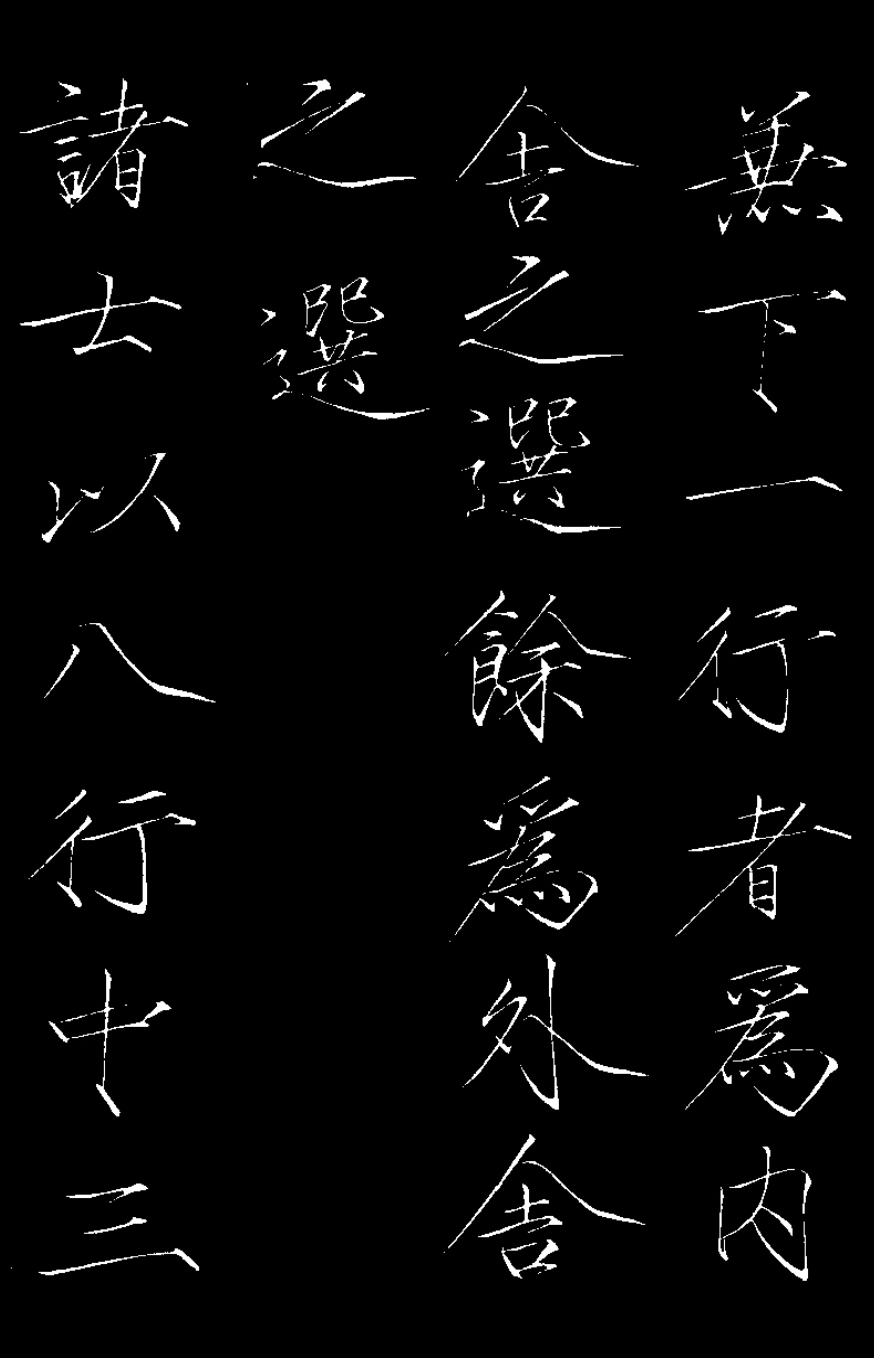 兼下一行者爲內
舍之選餘爲外舍
之選
諸士以八行中三